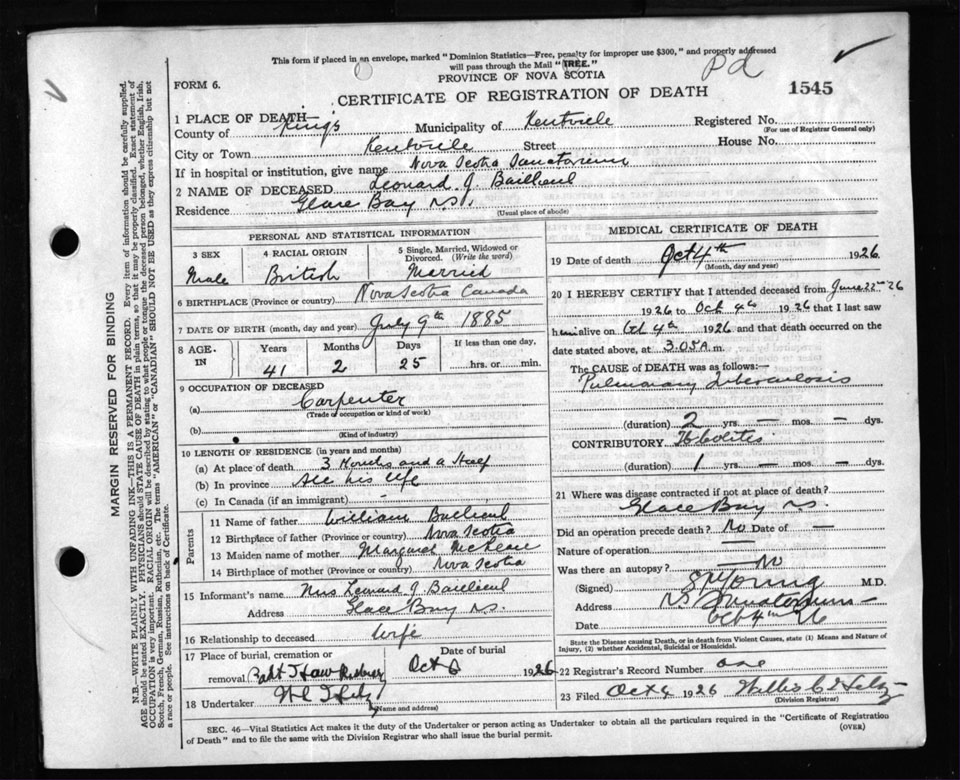 This form if placed in an envelope, marked "Dominion Statistics—Free, penalty for improper use $300," and properly addressed
will pass through the Mail "FREE."
Pd
PROVINCE OF NOVA SCOTIA
FORM 6.
CERTIFICATE OF REGISTRATION OF DEATH
1545
1 PLACE OF DEATH—
County of King's Municipality of Kentville Registered No.
(For use of Registrar General only)
City or Town Kentville Street House No.
If in hospital or institution, give name Nova Scotia Sanatorium
2 NAME OF DECEASED Leonard J. Baillieul
Residence Glace Bay N.S.
(Usual place of abode)
PERSONAL AND STATISTICAL INFORMATION
3 SEX 4 RACIAL ORIGIN 5 Single, Married, Widowed or Divorced. (Write the word)
Male British Married
6 BIRTHPLACE (Province or country) Nova Scotia Canada
7 DATE OF BIRTH (month, day and year) July 9th 1885
8 AGE IN Years Months Days If less than one day,
41 2 25 hrs. or min.
9 OCCUPATION OF DECEASED
(a) Carpenter
(Trade of occupation or kind of work)
(b)
(Kind of industry)
10 LENGTH OF RESIDENCE (in years and months)
(a) At place of death 3 Months and a Half
(b) In province All his life
(c) In Canada (if an immigrant) -
Parents
11 Name of father William Baillieul
12 Birthplace of father (Province or country) Nova Scotia
13 Maiden name of mother Margaret
14 Birthplace of mother (Province or country) Nova Scotia
15 Informant's name Mrs Leonard J. Baillieul
Address Glace Bay N.S.
16 Relationship to deceased wife
17 Place of burial, cremation or removal Date of burial
Port Hawkesbury Oct 6 1926
18 Undertaker
(Name and address)
MEDICAL CERTIFICATE OF DEATH
19 Date of death Oct 4th 1926
(Month, day and year)
20 I HEREBY CERTIFY that I attended deceased from June 22nd 26
1926 to Oct 4th 1926 that I last saw
him alive on Oct 4th 1926 and that death occurred on the
date stated above, at 3.05 A.m.
The CAUSE of DEATH was as follows:—
Pulmonary Tuberculosis
(duration) 2 yrs. — mos. — dys.
CONTRIBUTORY Tb Colitis
(duration) 1 yrs. — mos. — dys.
21 Where was disease contracted if not at place of death?
Glace Bay N.S.
Did an operation precede death? No Date of —
Nature of operation —
Was there an autopsy? No
(Signed) Young M.D.
Address NS Sanatorium
Date Oct 4th 26
State the Disease causing Death, or in death from Violent Causes, state (1) Means and Nature of
Injury, (2) whether Accidental, Suicidal or Homicidal.
22 Registrar's Record Number one
23 Filed Oct 6 1926
(Division Registrar)
SEC. 46—Vital Statistics Act makes it the duty of the Undertaker or person acting as Undertaker to obtain all the particulars required in the "Certificate of Registration
of Death" and to file the same with the Division Registrar who shall issue the burial permit.
(OVER)
MARGIN RESERVED FOR BINDING
N.B.—WRITE PLAINLY WITH UNFADING INK—THIS IS A PERMANENT RECORD. Every item of information should be carefully supplied.
AGE should be stated EXACTLY. PHYSICIANS should STATE CAUSE OF DEATH in plain terms, so that it may be properly classified. Exact statement of
OCCUPATION is very important. RACIAL ORIGIN will be described by stating to what people or tongue the deceased person belonged, whether English, Irish,
Scotch, French, German, Russian, Ruthenian, etc. The terms "AMERICAN" or "CANADIAN" SHOULD NOT BE USED as they express citizenship but not
a race or people. See instructions on back of Certificate.